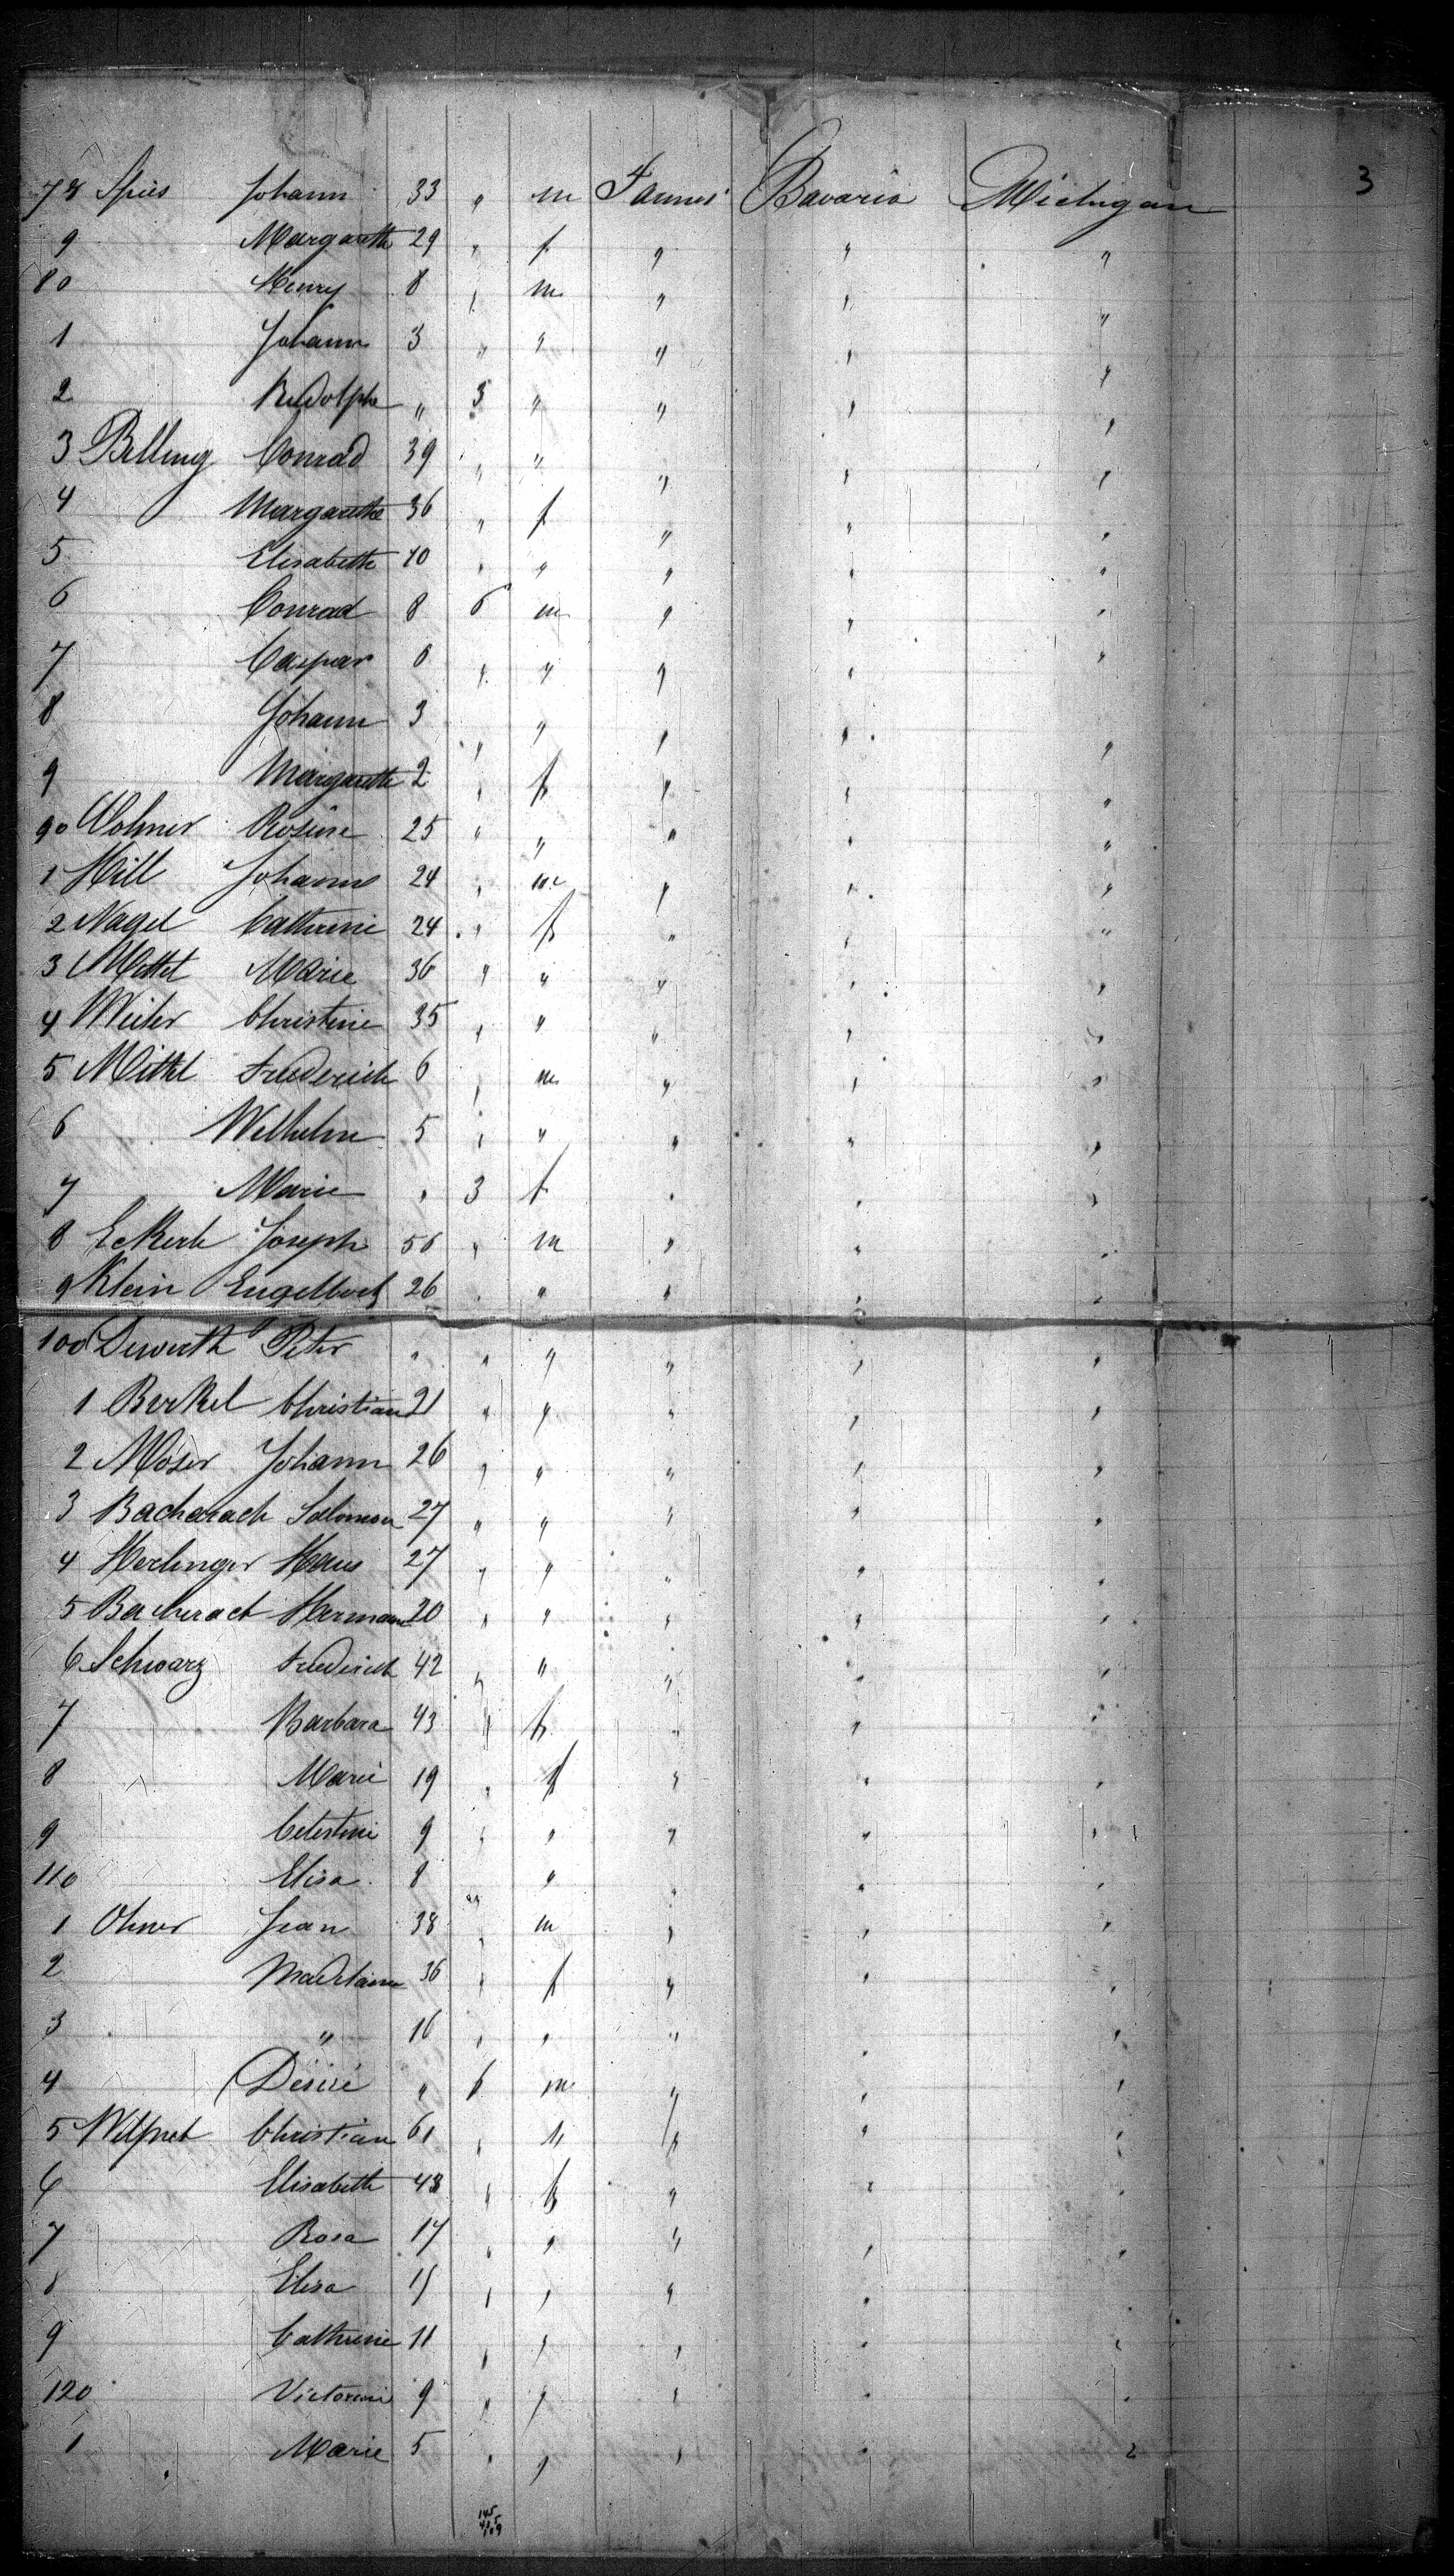 3
78 Spies Johann 33 " m Farmer Bavaria Michigan
9 Margareth 29 " f " " "
80 Henry 8 " m " " "
1 Johann 3 " " " " "
2 Rudolphe " 3 " " " "
3 Billing Conrad 39 " " " " "
4 Margarethe 36 " f " " "
5 Elisabeth 10 " " " " "
6 Conrad 8 6 m " " "
7 Caspar 6 " " " " "
8 Johann 3 " " " " "
9 Margareth 2 " f " " "
90 Wohner Rosine 25 " " " " "
1 Hill Johann 24 " m " " "
2 Nagel Catherine 24 " f " " "
3 Mittel Marie 36 " " " " "
4 Weiler Christine 35 " " " " "
5 Mittel Frederich 6 " m " " "
6 Wilhelm 5 " " " " "
7 Marie " 3 f " " "
8 Eckert Joseph 56 " m " " "
9 Klein 26 " " " " "
100 Dewerth Peter " " " " " "
1 Berkel Christian 21 " " " " "
2 Moser Johann 26 " " " " "
3 Bacharach Salomon 27 " " " " "
4 Herlinger Hans 27 " " " " "
5 Bacherach Herman 20 " " " " "
6 Schwarz Frederich 42 " " " " "
7 Barbara 43 " f " " "
8 Marie 19 " f " " "
9 Celestine 9 " " " " "
110 Elisa 8 " " " " "
1 Ohner Jean 38 " m " " "
2 Madelaine 36 " f " " "
3 " 16 " " " " "
4 Désiré " 6 m " " "
5 Christian 61 " " " " "
6 Elisabeth 43 " f " " "
7 Rosa 17 " " " " "
8 Elisa 15 " " " " "
9 Cathrine 11 " " " " "
120 Victorine 9 " " " " "
1 Marie 5 " " " " "